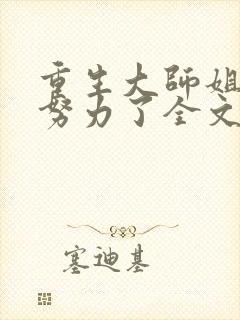 重生大师姐
努力了全文
塞迪基